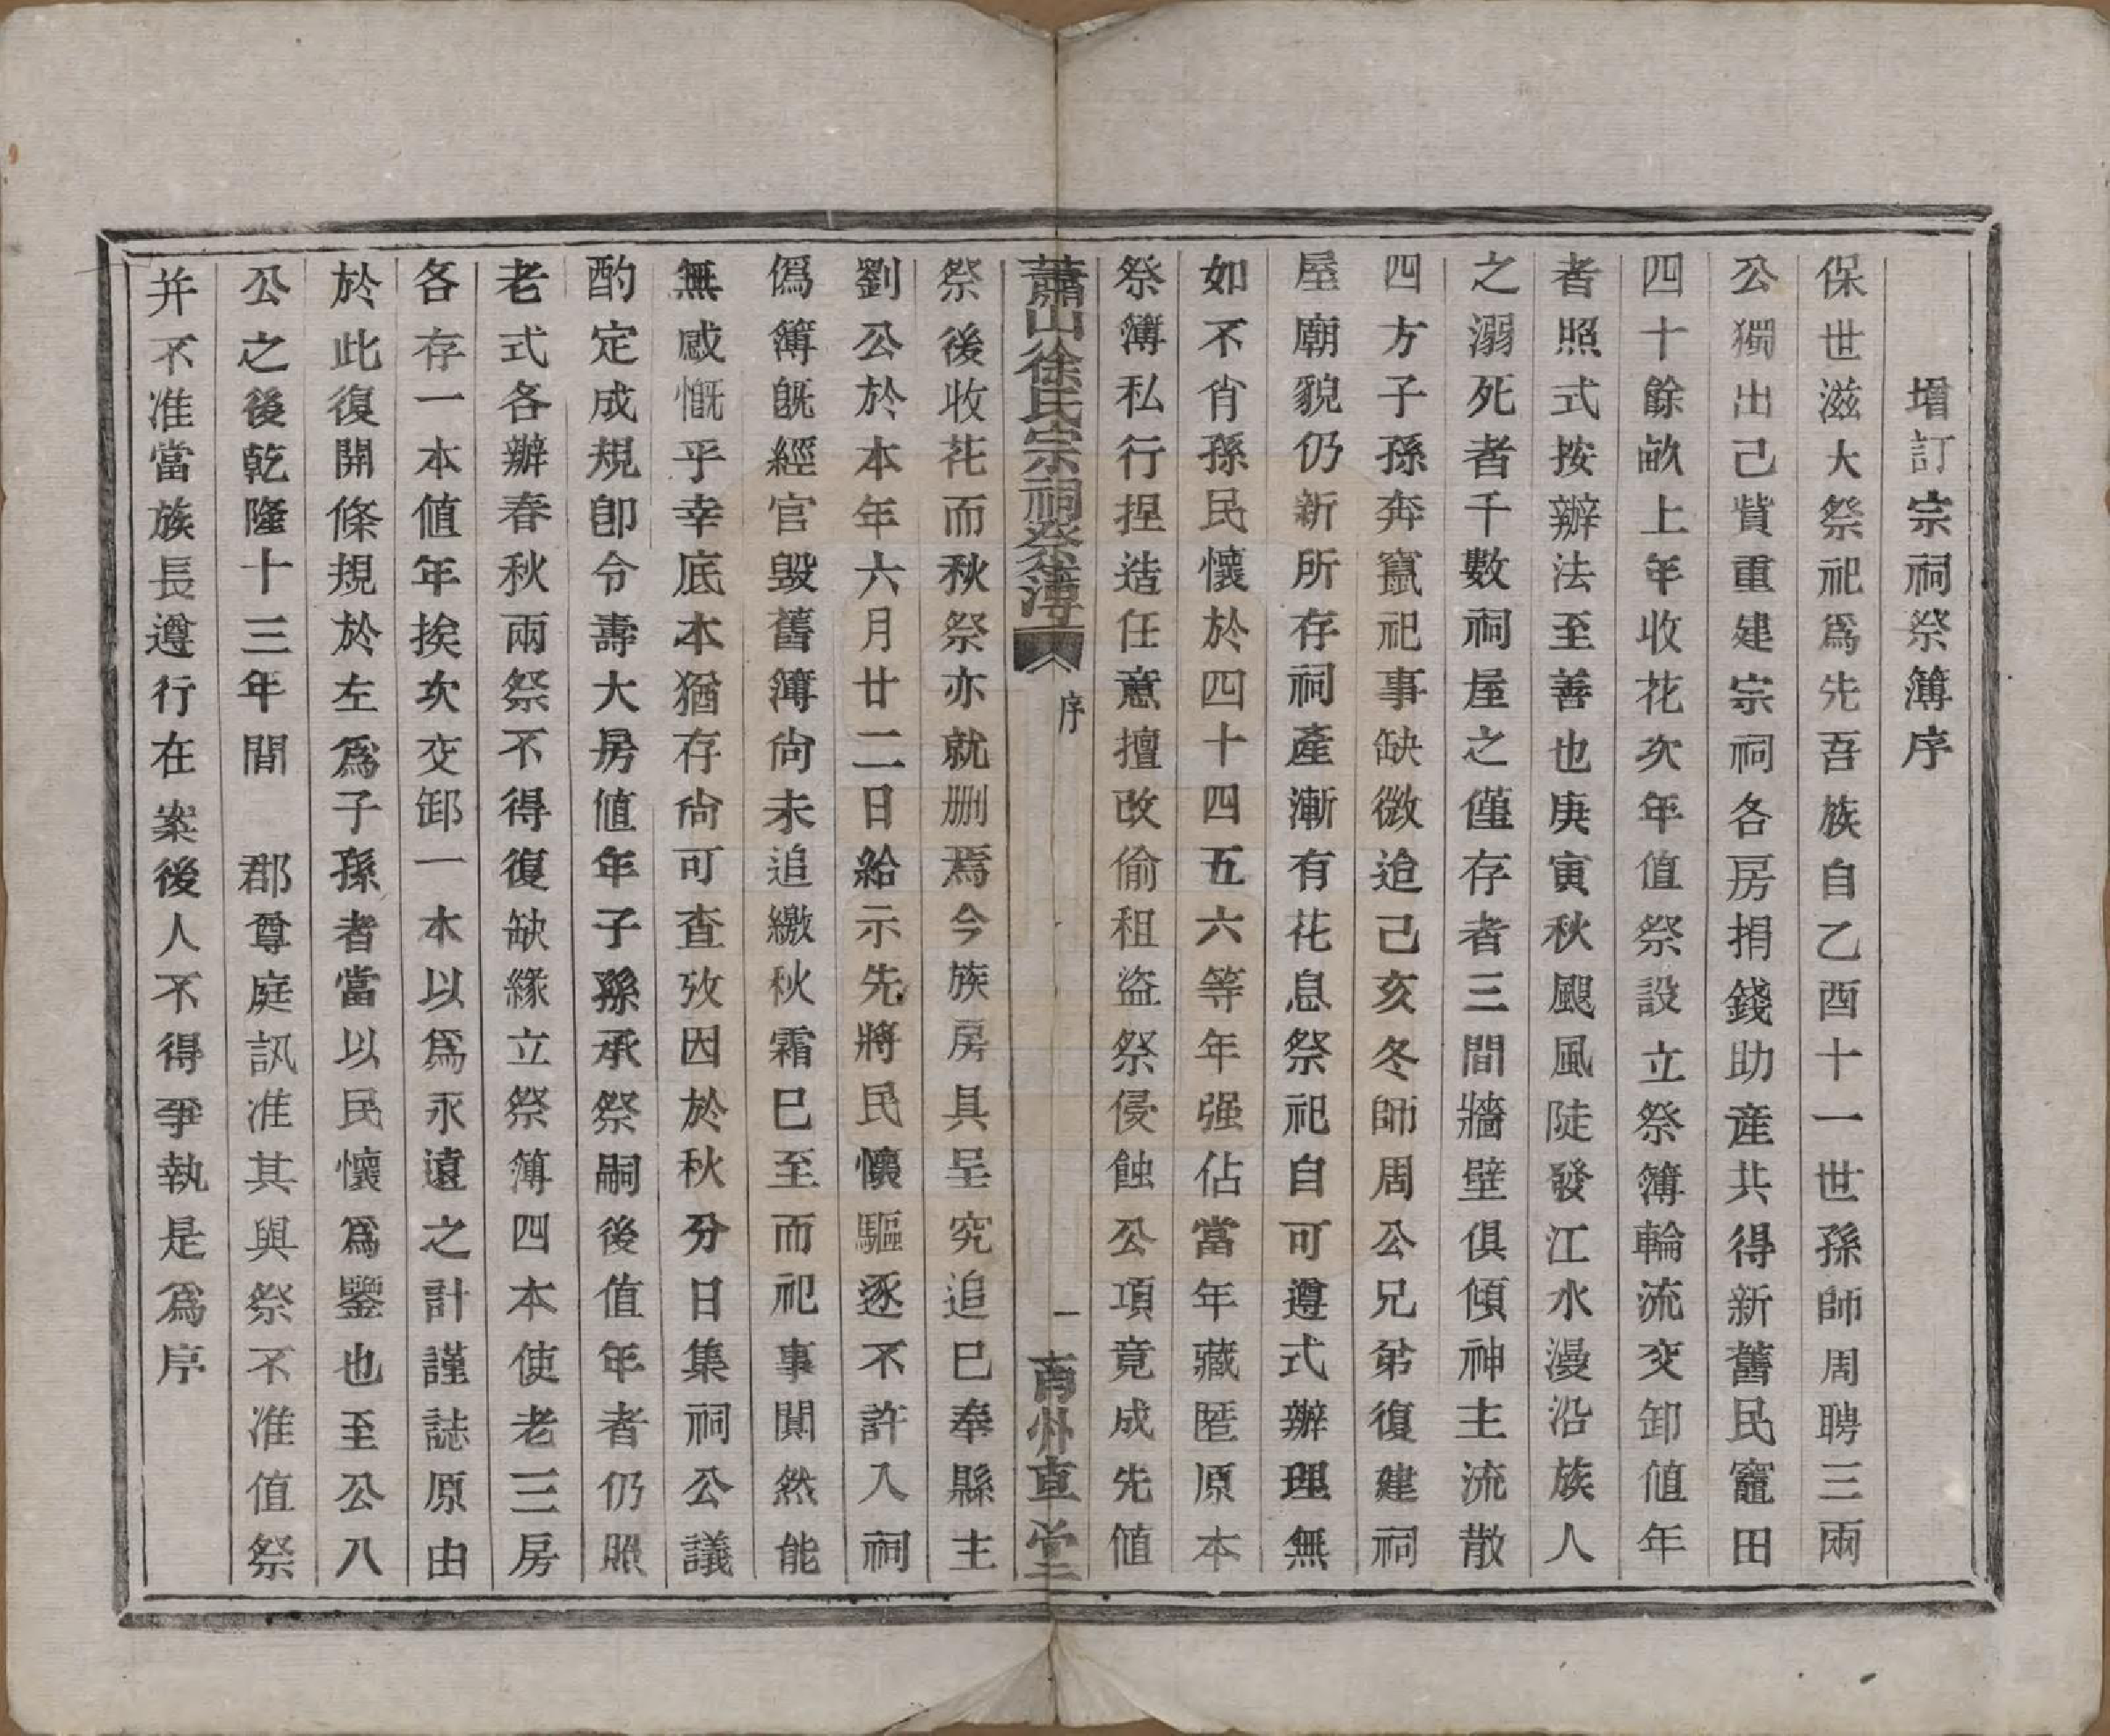 增訂宗祠祭簿序
保世滋大祭祀爲先吾族自乙酉十一世孫師周聘三兩
公獨出己貲重建宗祠各房捐錢助產共得新舊民竈田
四十餘畝上年收花次年值祭設立祭簿輪流交卸值年
者照式按辦法至善也庚寅秋颶風陡發江水漫沿族人
之溺死者千數祠屋之僅存者三間牆壁俱傾神主流散
四方子孫奔竄祀事缺微迨己亥冬師周公兄弟復建祠
屋廟貌仍新所存祠產漸有花息祭祀自可遵式辦理無
如不肖孫民懷於四十四五六等年强佔當年藏匿原本
祭簿私行捏造任意擅改偷租盜祭侵蝕公項竟成先值
蕭山徐氏宗祠祭簿 序 一 南州草堂
祭後收花而秋祭亦就删焉今族房具呈究追巳奉縣主
劉公於本年六月廿二日給示先將民懷驅逐不許入祠
僞簿旣經官毀舊簿尙未追繳秋霜巳至而祀事闃然能
無感慨乎幸底本猶存尙可查攷因於秋分日集祠公議
酌定成規卽令壽大房值年子孫承祭嗣後值年者仍照
老式各辦春秋兩祭不得復缺緣立祭簿四本使老三房
各存一本值年挨次交卸一本以爲永遠之計謹誌原由
於此復開條規於左爲子孫者當以民懷爲鑒也至公八
公之後乾隆十三年間　郡尊庭訊准其與祭不准值祭
并不准當族長遵行在案後人不得爭執是爲序